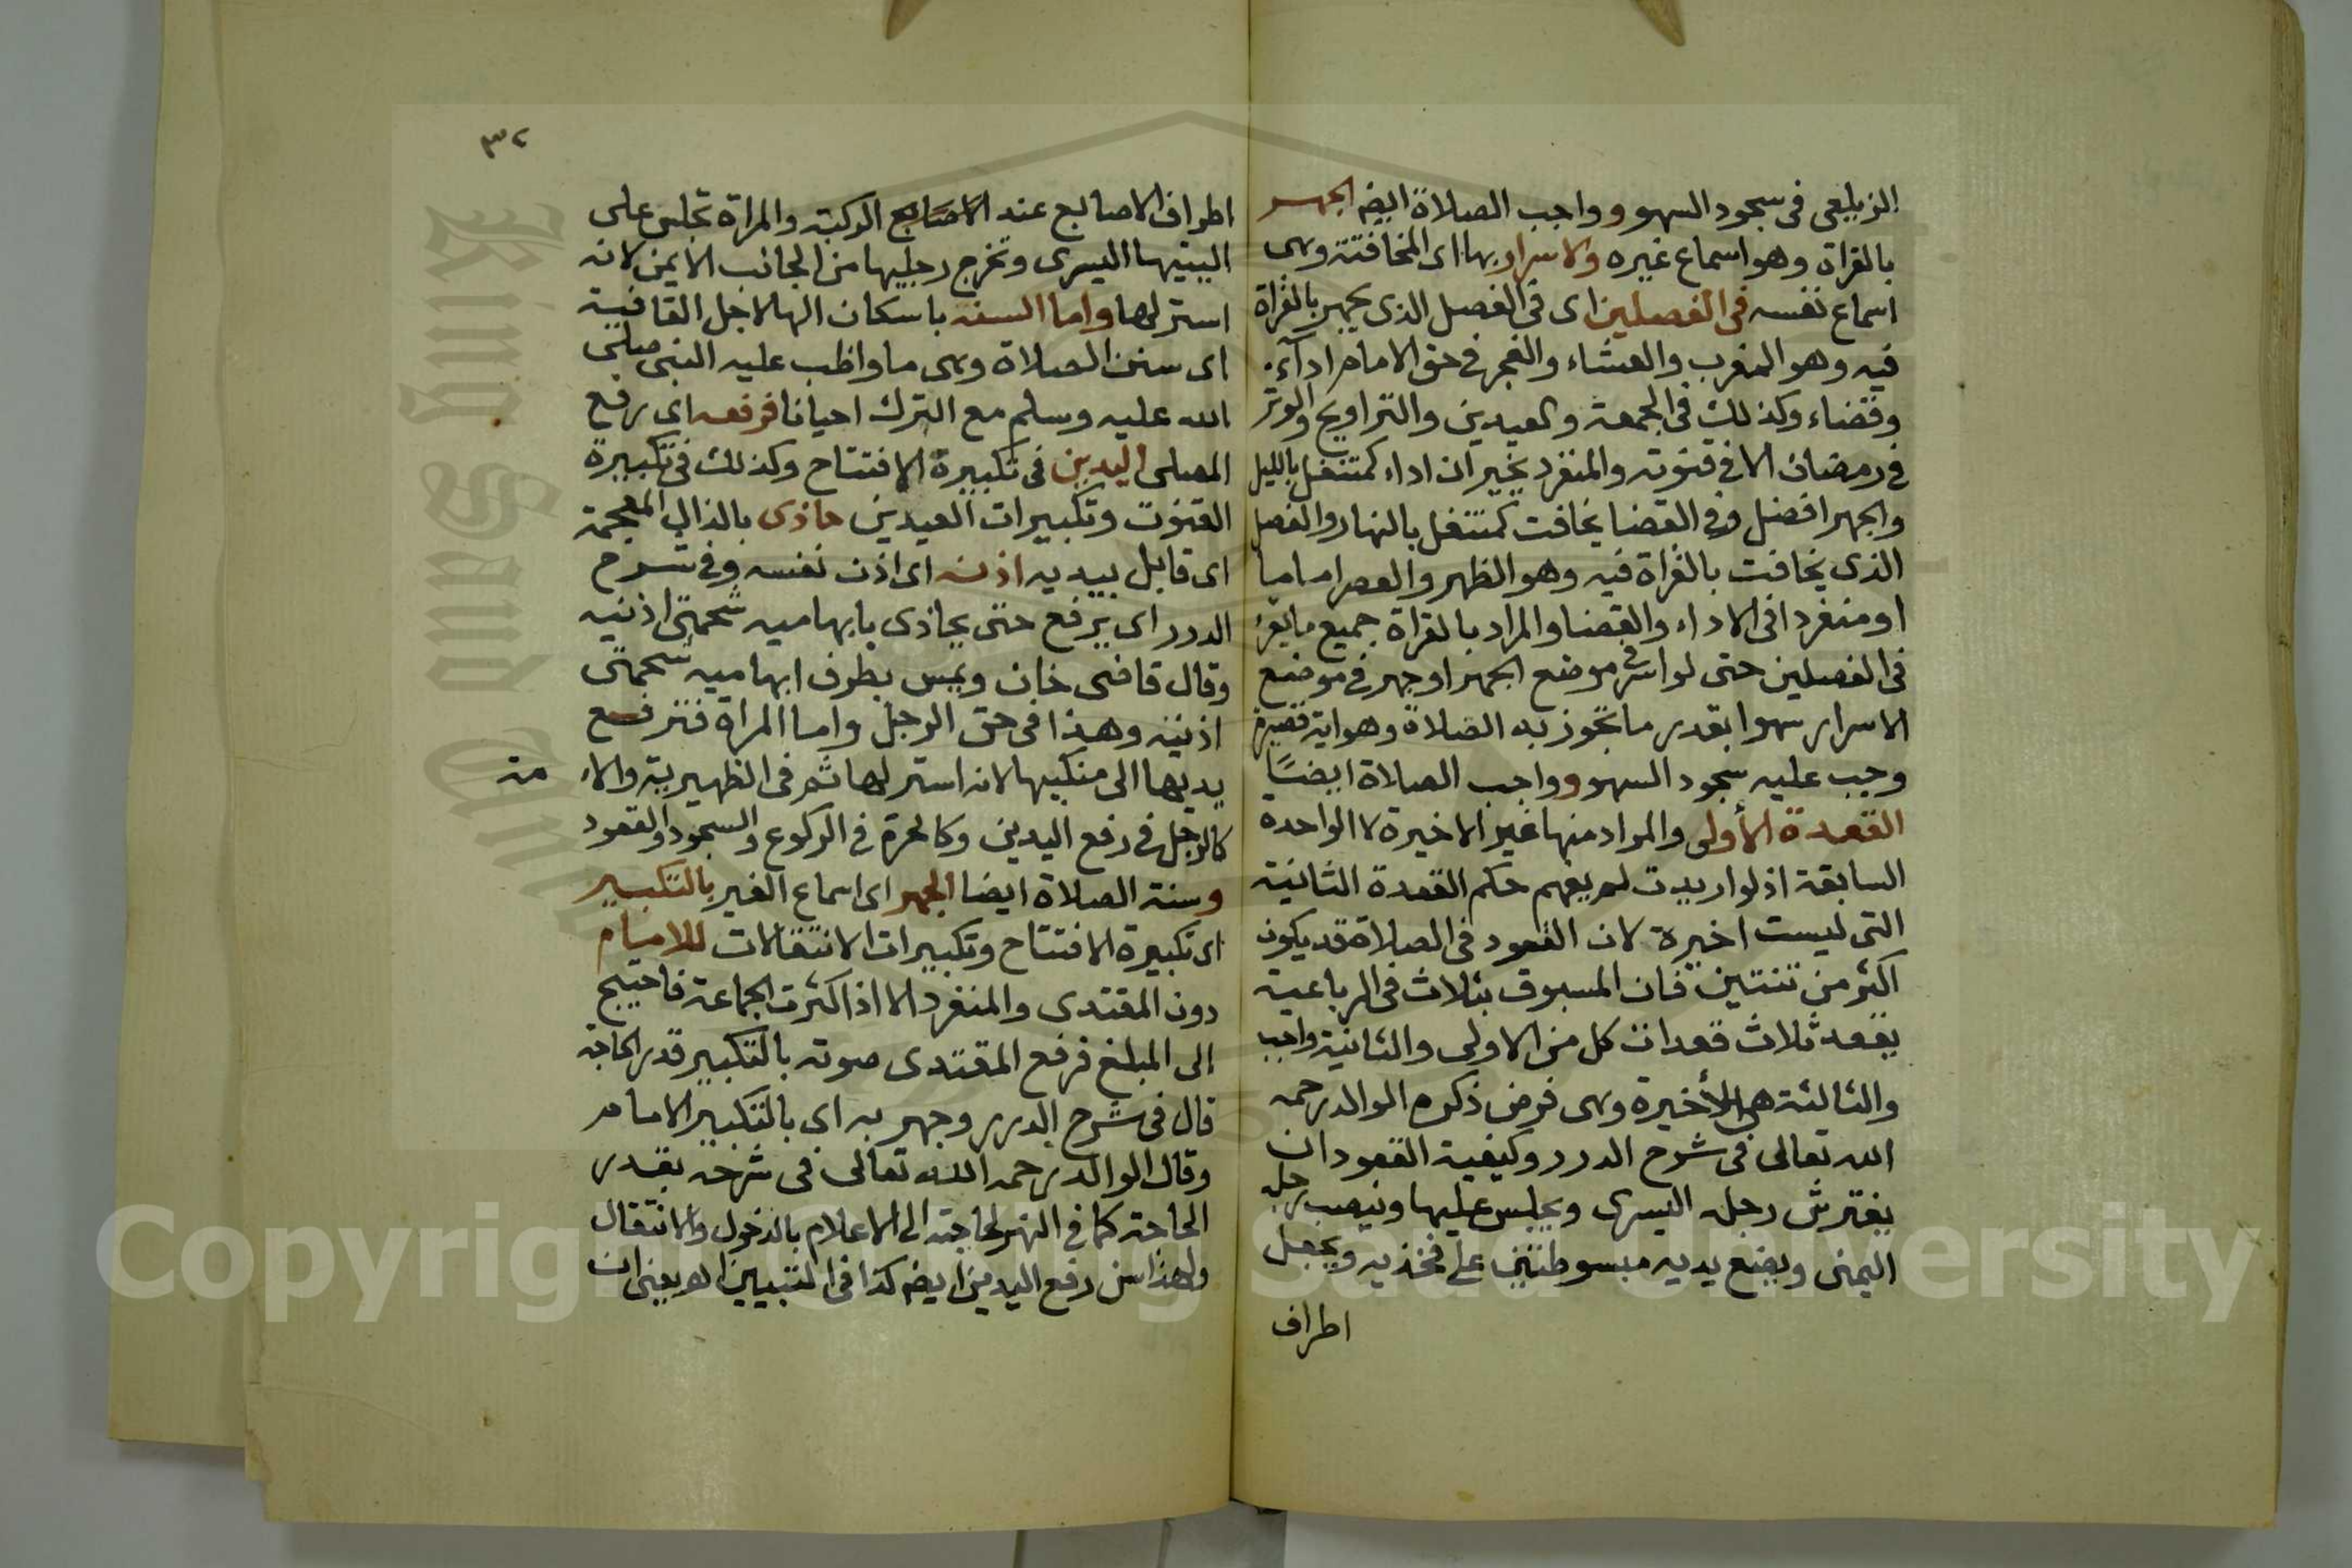 الزيلعى فى سجود السهو وواجب الصلاة ايضه الجهر
بالقراة وهو اسماع غيره والاسرار بها اى المخافتة وهى
اسماع نفسه فى الفصلين اى فى الفصل الذى يجهر بالقراة
فيه وهو المغرب والعشاء والفجر فى حق الامام اداآء
وقضاء وكذلك فى الجمعة والعيدين والتراويح والوتر
فى رمضان الا فى قنوته والمنفرد يخير ان اداء كمتنفل بالليل
والجهر افضل وفى القضا يخافت كمتنفل بالنهار والفصل
الذى يخافت بالقراة فيه وهو الظهر والعصر اماما
او منفردا فى الاداء والقضا والمراد بالقراة جميع ما يقرء
فى الفصلين حتى لو اسر فى موضع الجهر او جهر فى موضع
الاسرار سهوا بقدر ما تجوز به الصلاة وهو اية قصيرة
وجب عليه سجود السهو وواجب الصلاة ايضًا
القعدة الأولى والمراد منها غير الاخيرة لا الواحدة
السابقة اذ لو اريدت لم يفهم حكم القعدة الثانية
التى ليست اخيرة لان القعود فى الصلاة قد يكون
اكثر من ثنتين فان المسبوق بثلاث فى الرباعية
يقعد ثلاث قعدات كل من الاولى والثانية واجب
والثالثة هى الأخيرة وهى فرض ذكره الوالد رحمه
الله تعالى فى شرح الدرر وكيفية القعود ان
يفترش رجله اليسرى ويجلس عليها وينصب رجله
اليمنى ويضع يديه مبسوطتين على فخذيه ويجعل
اطراف
٣٢
اطراف الاصابع عند الاصابع الركبة والمراة تجلس على
اليتها اليسرى وتخرج رجليها من الجانب الايمن لانه
استر لها واما السنه باسكان الها لاجل القافية
اى سنن الصلاة وهى ما واظب عليه النبى صلى
الله عليه وسلم مع الترك احيانا فرفعه اى رفع
المصلى اليدين فى تكبيرة الافتتاح وكذلك فى تكبيرة
القنوت وتكبيرات العيدين حاذى بالذال المعجمة
اى قابل بيديه اذنه اى اذن نفسه وفى شرح
الدرر اى يرفع حتى يحاذى بابهاميه شحمتى اذنيه
وقال قاضى خان ويمس بطرف ابهاميه شحمتى
اذنيه وهذا فى حق الرجل واما المراة فترفع
يديها الى منكبيها لانه استر لها ثم فى الظهيرية والا
مة
كالرجل فى رفع اليدين وكالحرة فى الركوع والسجود والقعود
وسنة الصلاة ايضا الجهر اى اسماع الغير بالتكبير
اى تكبيرة الافتتاح وتكبيرات الانتقالات للامام
دون المقتدى والمنفرد الا اذا كثرت الجماعة فاحتيج
الى المبلغ فرفع المقتدى صوته بالتكبير قدر الحاجة
قال فى شرح الدرر وجهر به اى بالتكبير الامام
وقال الوالد رحمه الله تعالى فى شرحه بقدر
الحاجة كما فى النهر لحاجته الى الاعلام بالدخول والانتقال
ولهذا سن رفع اليدين ايضه كذا فى التبيين اهـ يعنى ان
Copyright © King Saud University
King Saud University